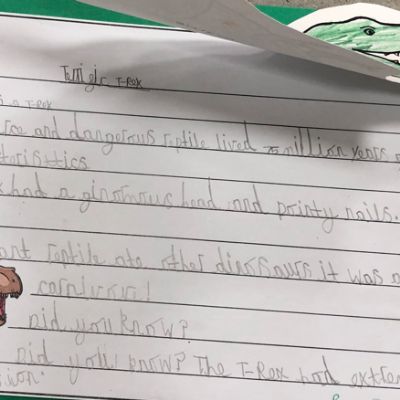 T-Rex
s a T-Rex
rce and dangerous reptile lived 75 million years
teristics
x had a ginormous head and pointy nails.
ant reptile ate other dinosaurs it was a
carnivour!
Did you know?
Did you know? The T-Rex had extre
sion.